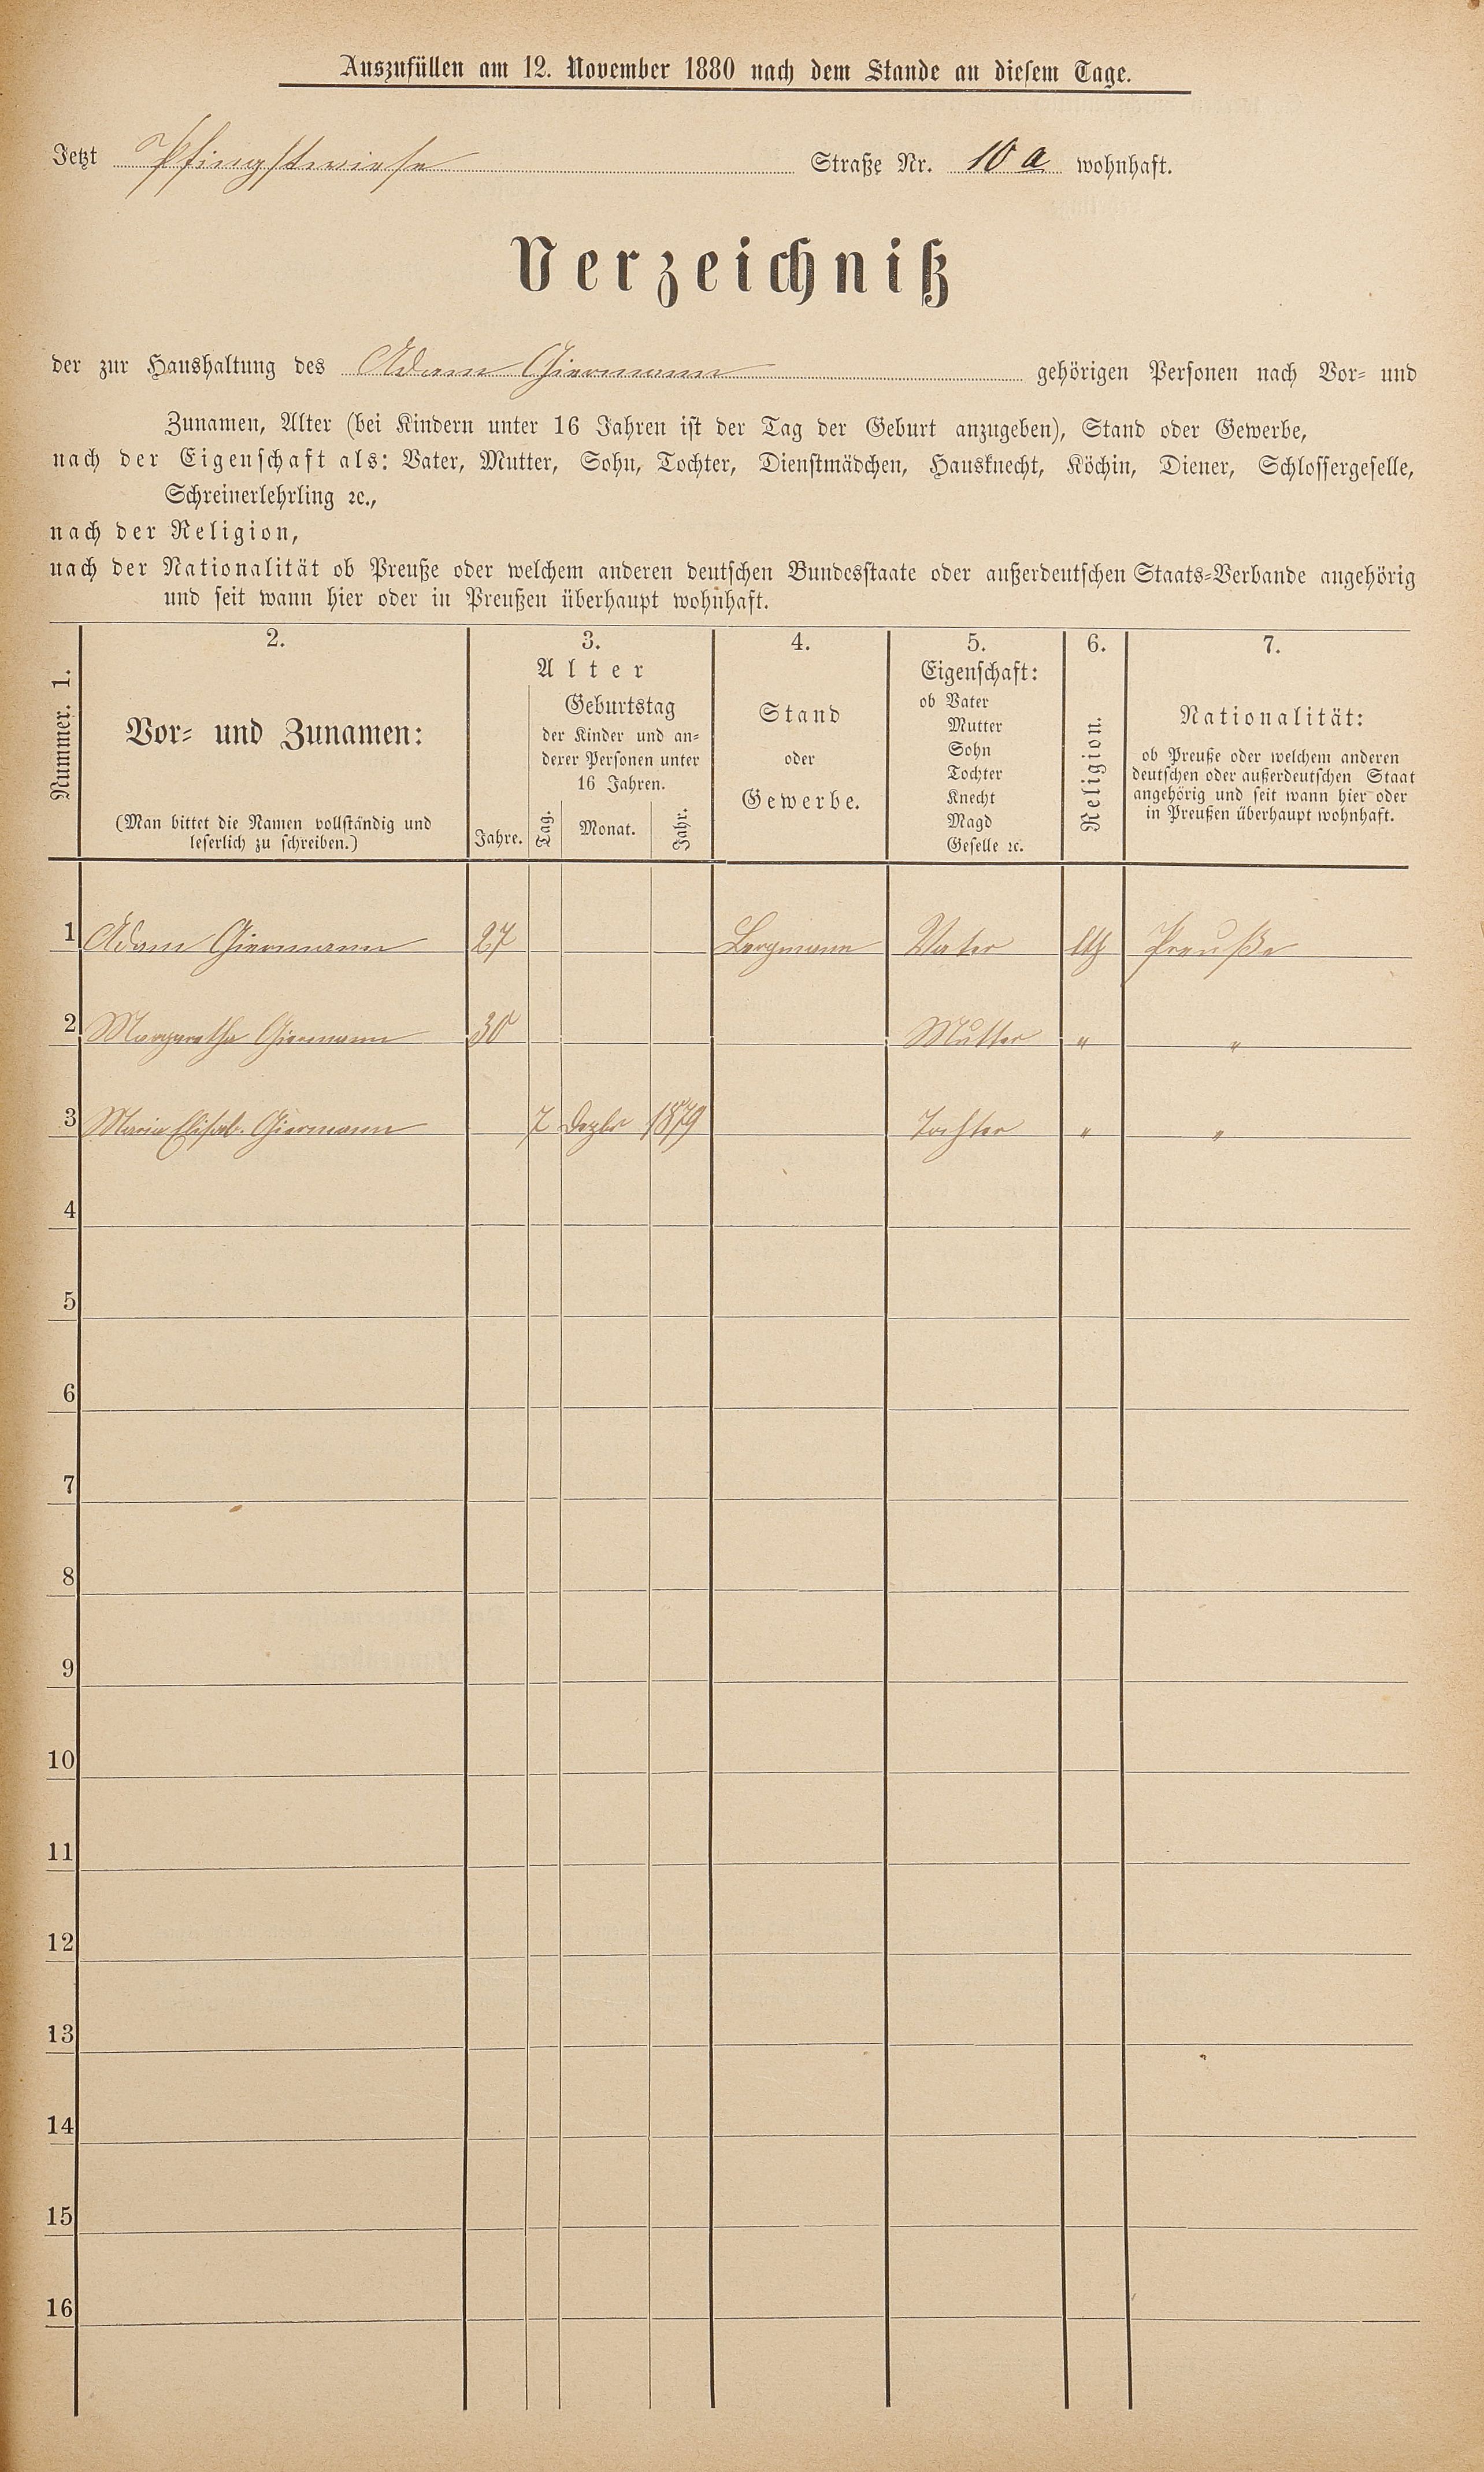 Auszufüllen am 12. November 1880 nach dem Stande an diesem Tage.
Jetzt Pfingstwiese Straße Nr. 10 a wohnhaft.
Verzeichniß
der zur Haushaltung des Adam Giermann gehörigen Personen nach Vor- und
Zunamen, Alter (bei Kindern unter 16 Jahren ist der Tag der Geburt anzugeben), Stand oder Gewerbe,
nach der Eigenschaft als: Vater, Mutter, Sohn, Tochter, Dienstmädchen, Hausknecht, Köchin, Diener, Schlossergeselle,
Schreinerlehrling ꝛc.,
nach der Religion,
nach der Nationalität ob Preuße oder welchem anderen deutschen Bundesstaate oder außerdeutschen Staats-Verbande angehörig
und seit wann hier oder in Preußen überhaupt wohnhaft.
Nummer. 1.
2.
Vor- und Zunamen:
(Man bittet die Namen vollständig und
leserlich zu schreiben.)
3.
Alter
Jahre.
Geburtstag
der Kinder und an-
derer Personen unter
16 Jahren.
Tag. Monat. Jahr.
4.
Stand
oder
Gewerbe.
5.
Eigenschaft:
ob Vater
Mutter
Sohn
Tochter
Knecht
Magd
Geselle ꝛc.
6.
Religion.
7.
Nationalität:
ob Preuße oder welchem anderen
deutschen oder außerdeutschen Staat
angehörig und seit wann hier oder
in Preußen überhaupt wohnhaft.
1 Adam Giermann 27 Bergmann Vater Preuße
2 Margaretha Giermann 30 Mutter " "
3 Maria Elisab. Giermann 7 Dezbr 1879 Tochter " "
4
5
6
7
8
9
10
11
12
13
14
15
16